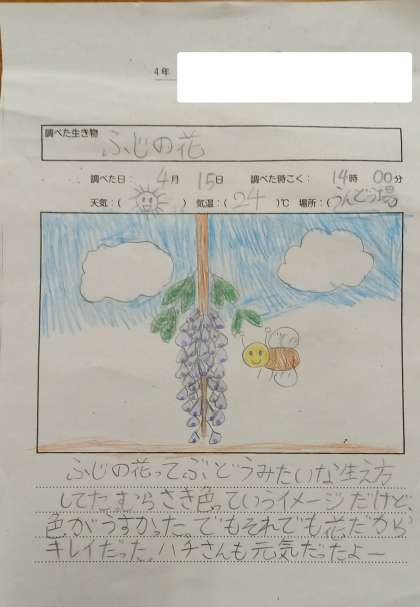 4年
調べた生き物
ふじの花
調べた日: 4月 15日 調べた時こく: 14時 00分
天気:( ) 気温:( 24 )℃ 場所:(うんどう場
ふじの花ってぶどうみたいな生え方
してた。むらさき色っていうイメージだけど、
色がうすかった。でもそれでも花だから
キレイだった。ハチさんも元気だったよー